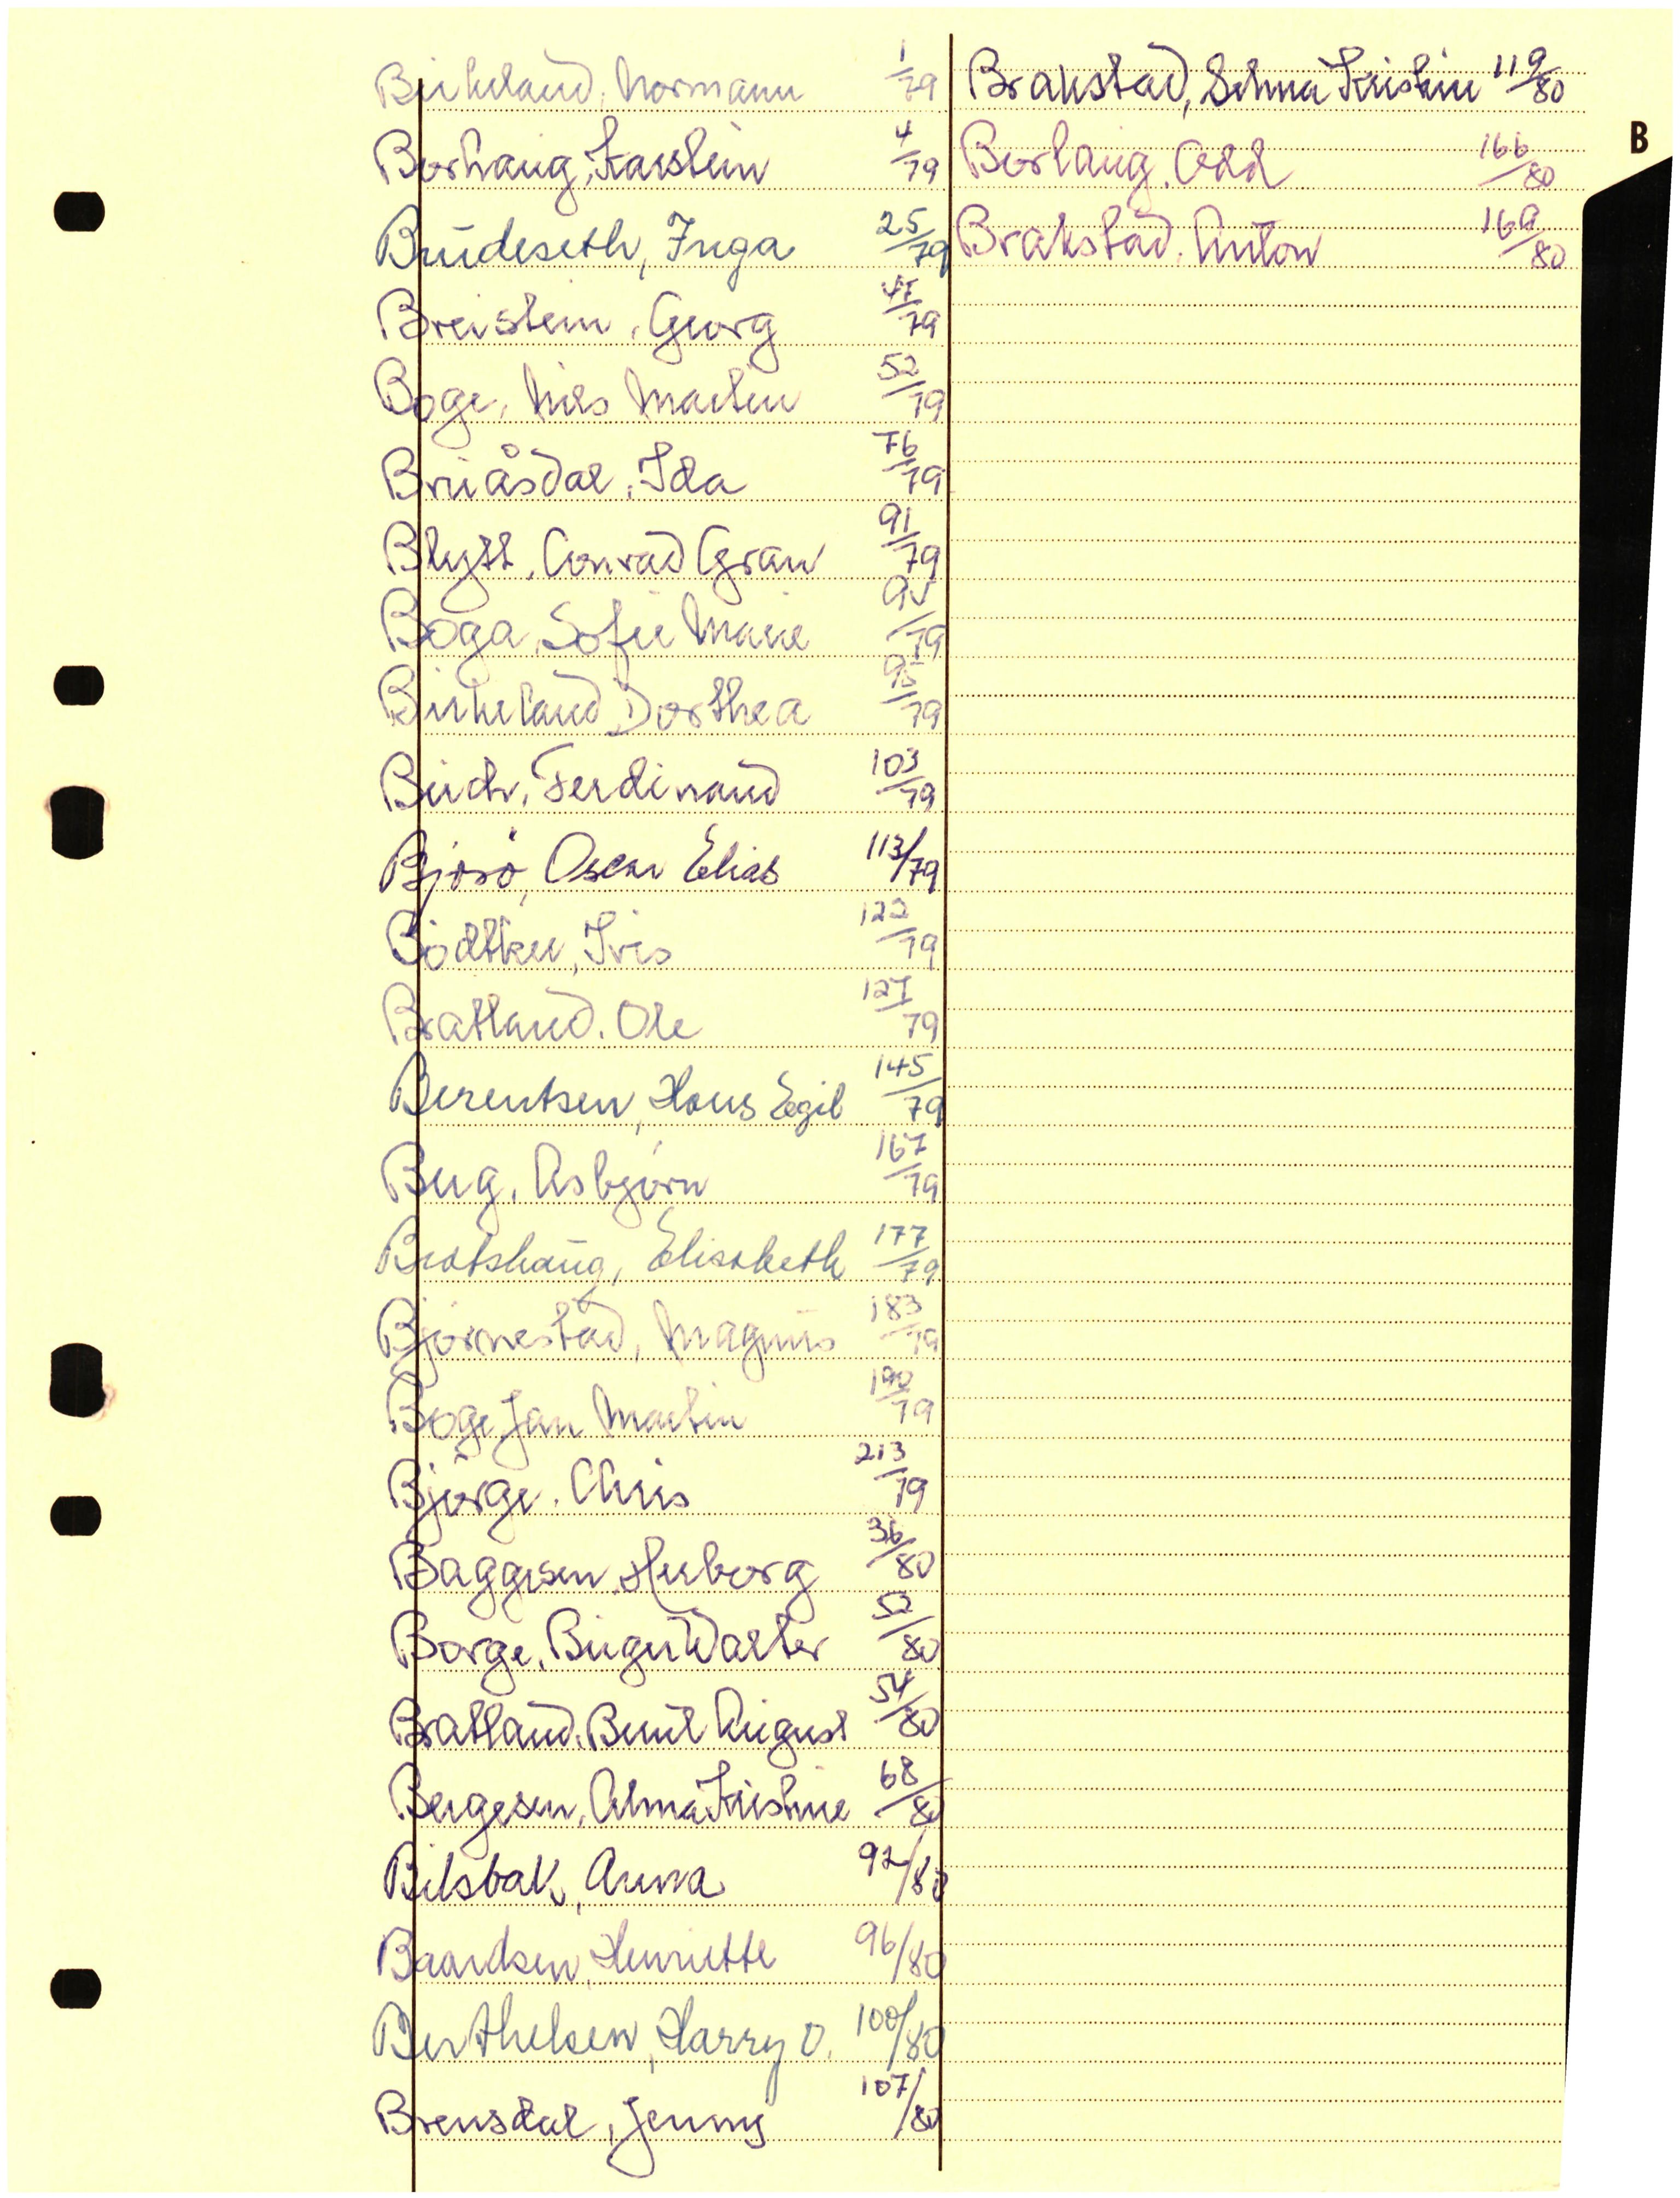 Birkeland, Normann 1/79
Borhaug, Karstein 4/79
Brudeseth, Inga 25/79
Breistein, Georg 47/79
Boge, Nils Martin 52/79
Bruåsdal, Ida 76/79
Blytt, Conrad Gran 91/79
Boga, Sofie Marie 95/79
Birkeland, Dorthea /79
Birch, Ferdinand 103/79
Bjorö, Oscar Elias 113/79
Bödtker, Iris 122/79
Bratland, Ole 127/79
Berentsen, Hans Egil 145/79
Berg, Asbjørn 167/79
Bratshaug, Elisabeth 177/79
Bjørnestad, Magnus 183/79
Boge, Jan Martin 190/79
Bjørge, Chris 213/79
Baggesen, Herborg 36/80
Borge, Birger Walter 52/80
Bratland, Bernt August 54/80
Bergesen, Alma Kristine 68/80
Bilsbak, Anna 92/80
Baardsen, Henriette 96/80
Berthelsen, Harry O. 100/80
Brensdal, Jenny 107/80
Brakstad, Selma Kristine 119/80
Borlaug, Odd 166/80
Brakstad, Anton 169/80
B